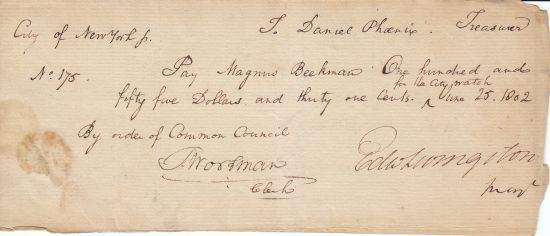 City of New York ss. To Daniel Phœnix. Treasurer
No. 175. Pay Magnus Beekman One hundred and
for the City Watch
fifty five Dollars and thirty one Cents. ‸ June 25. 1802
By order of Common Council
T Wortman Edw Livingston
Clerk mayr